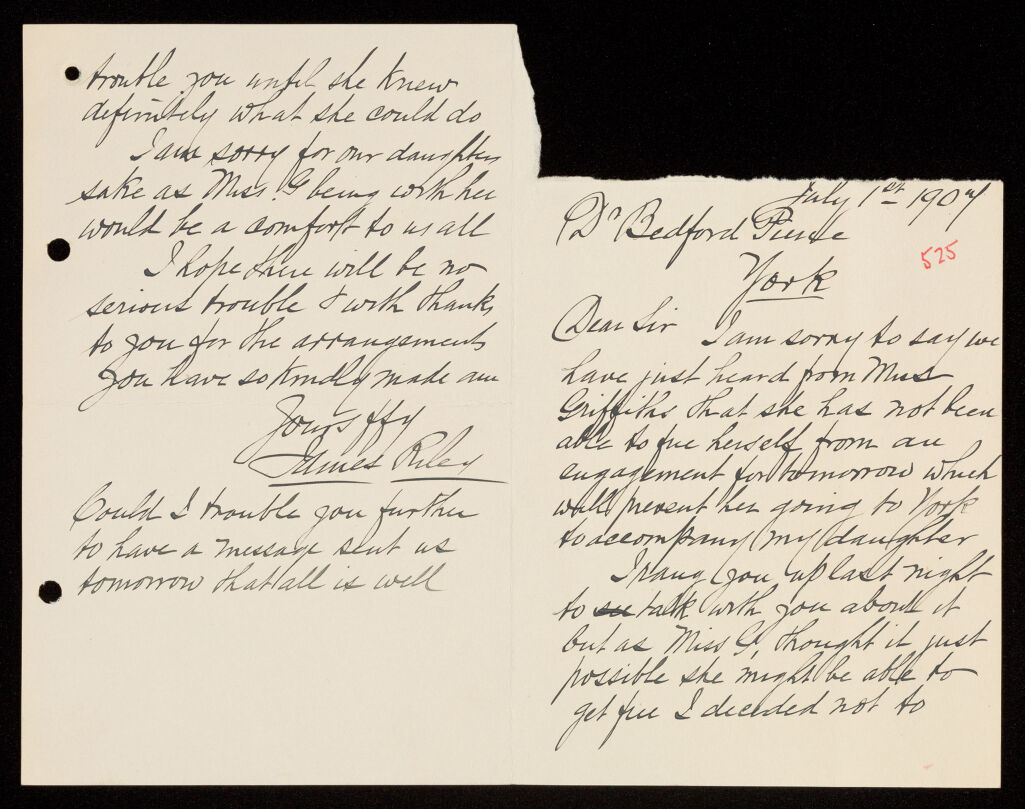 July 1st 1907
Dr Bedford Pierce
525
York
Dear Sir I am sorry to say we
have just heard from Miss
Griffiths that she has not been
able to free herself from an
engagement for tomorrow which
will prevent her going to York
to accompany my daughter
I rang you up last night
to see talk with you about it
but as Miss G, thought it just
possible she might be able to
get free I decided not to
trouble you until she knew
definitely what she could do
I am sorry for our daughters
sake as Miss. G being with her
would be a comfort to us all
I hope there will be no
serious trouble & with thanks
to you for the arrangements
you have so kindly made am
Yours ffy
James Riley
Could I trouble you further
to have a message sent us
tomorrow that all is well